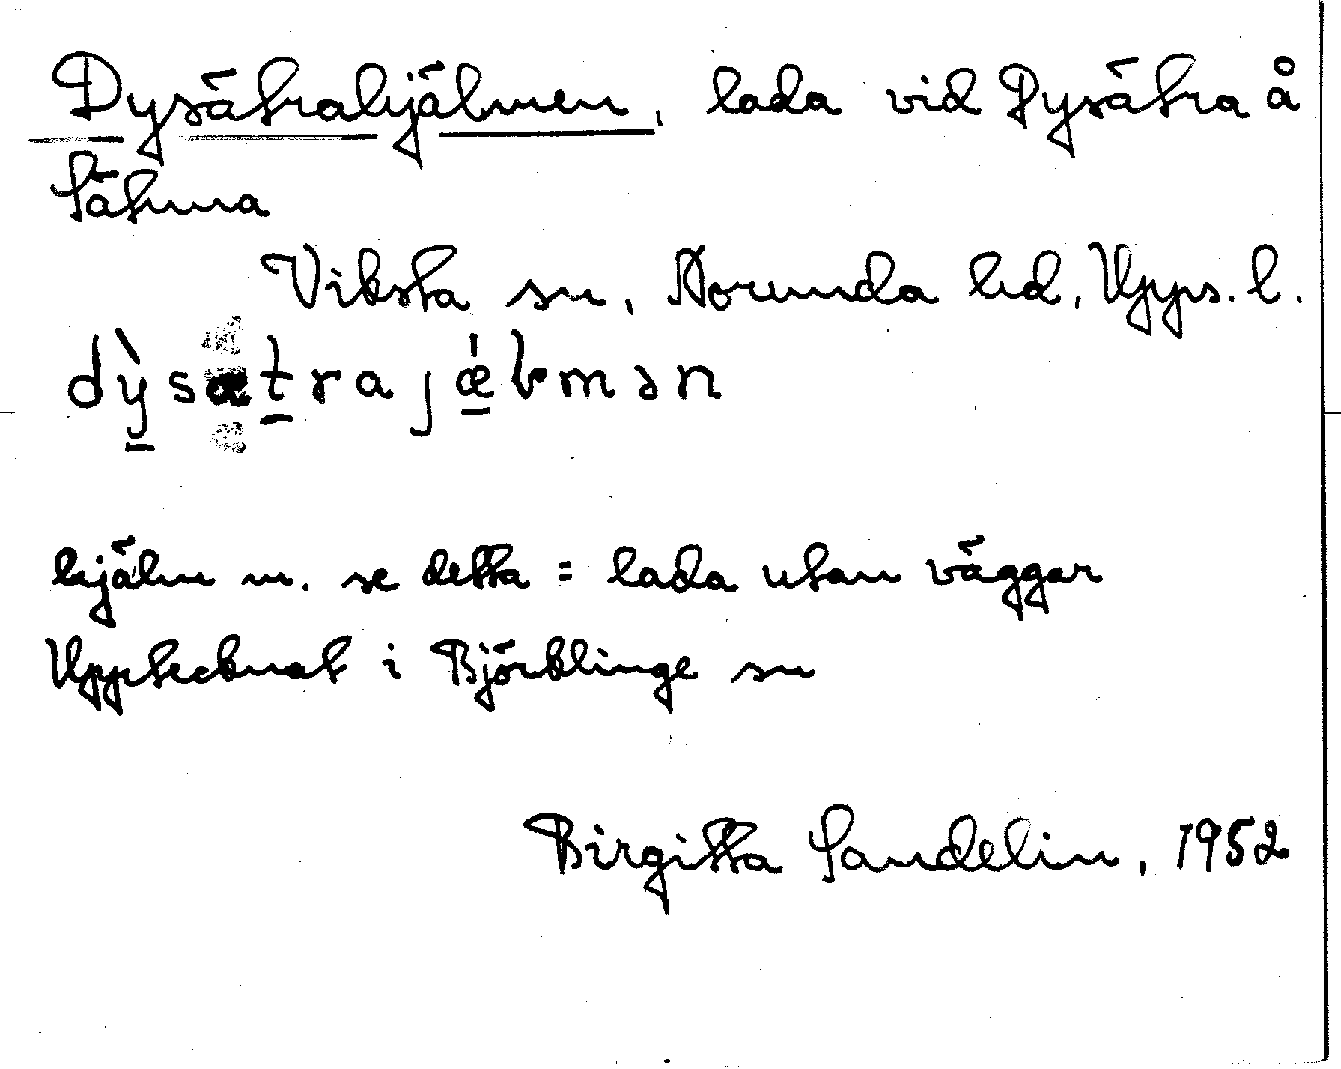 Dysätrahjälmen, lada vid Dysätra å
Sätuna
Viksta sn, Norunda hd, Upps. l.
dỳsætrajǽlmən
hjälm m. se detta = lada utan väggar
Upptecknat i Björklinge sn
Birgitta Sandelin, 1952